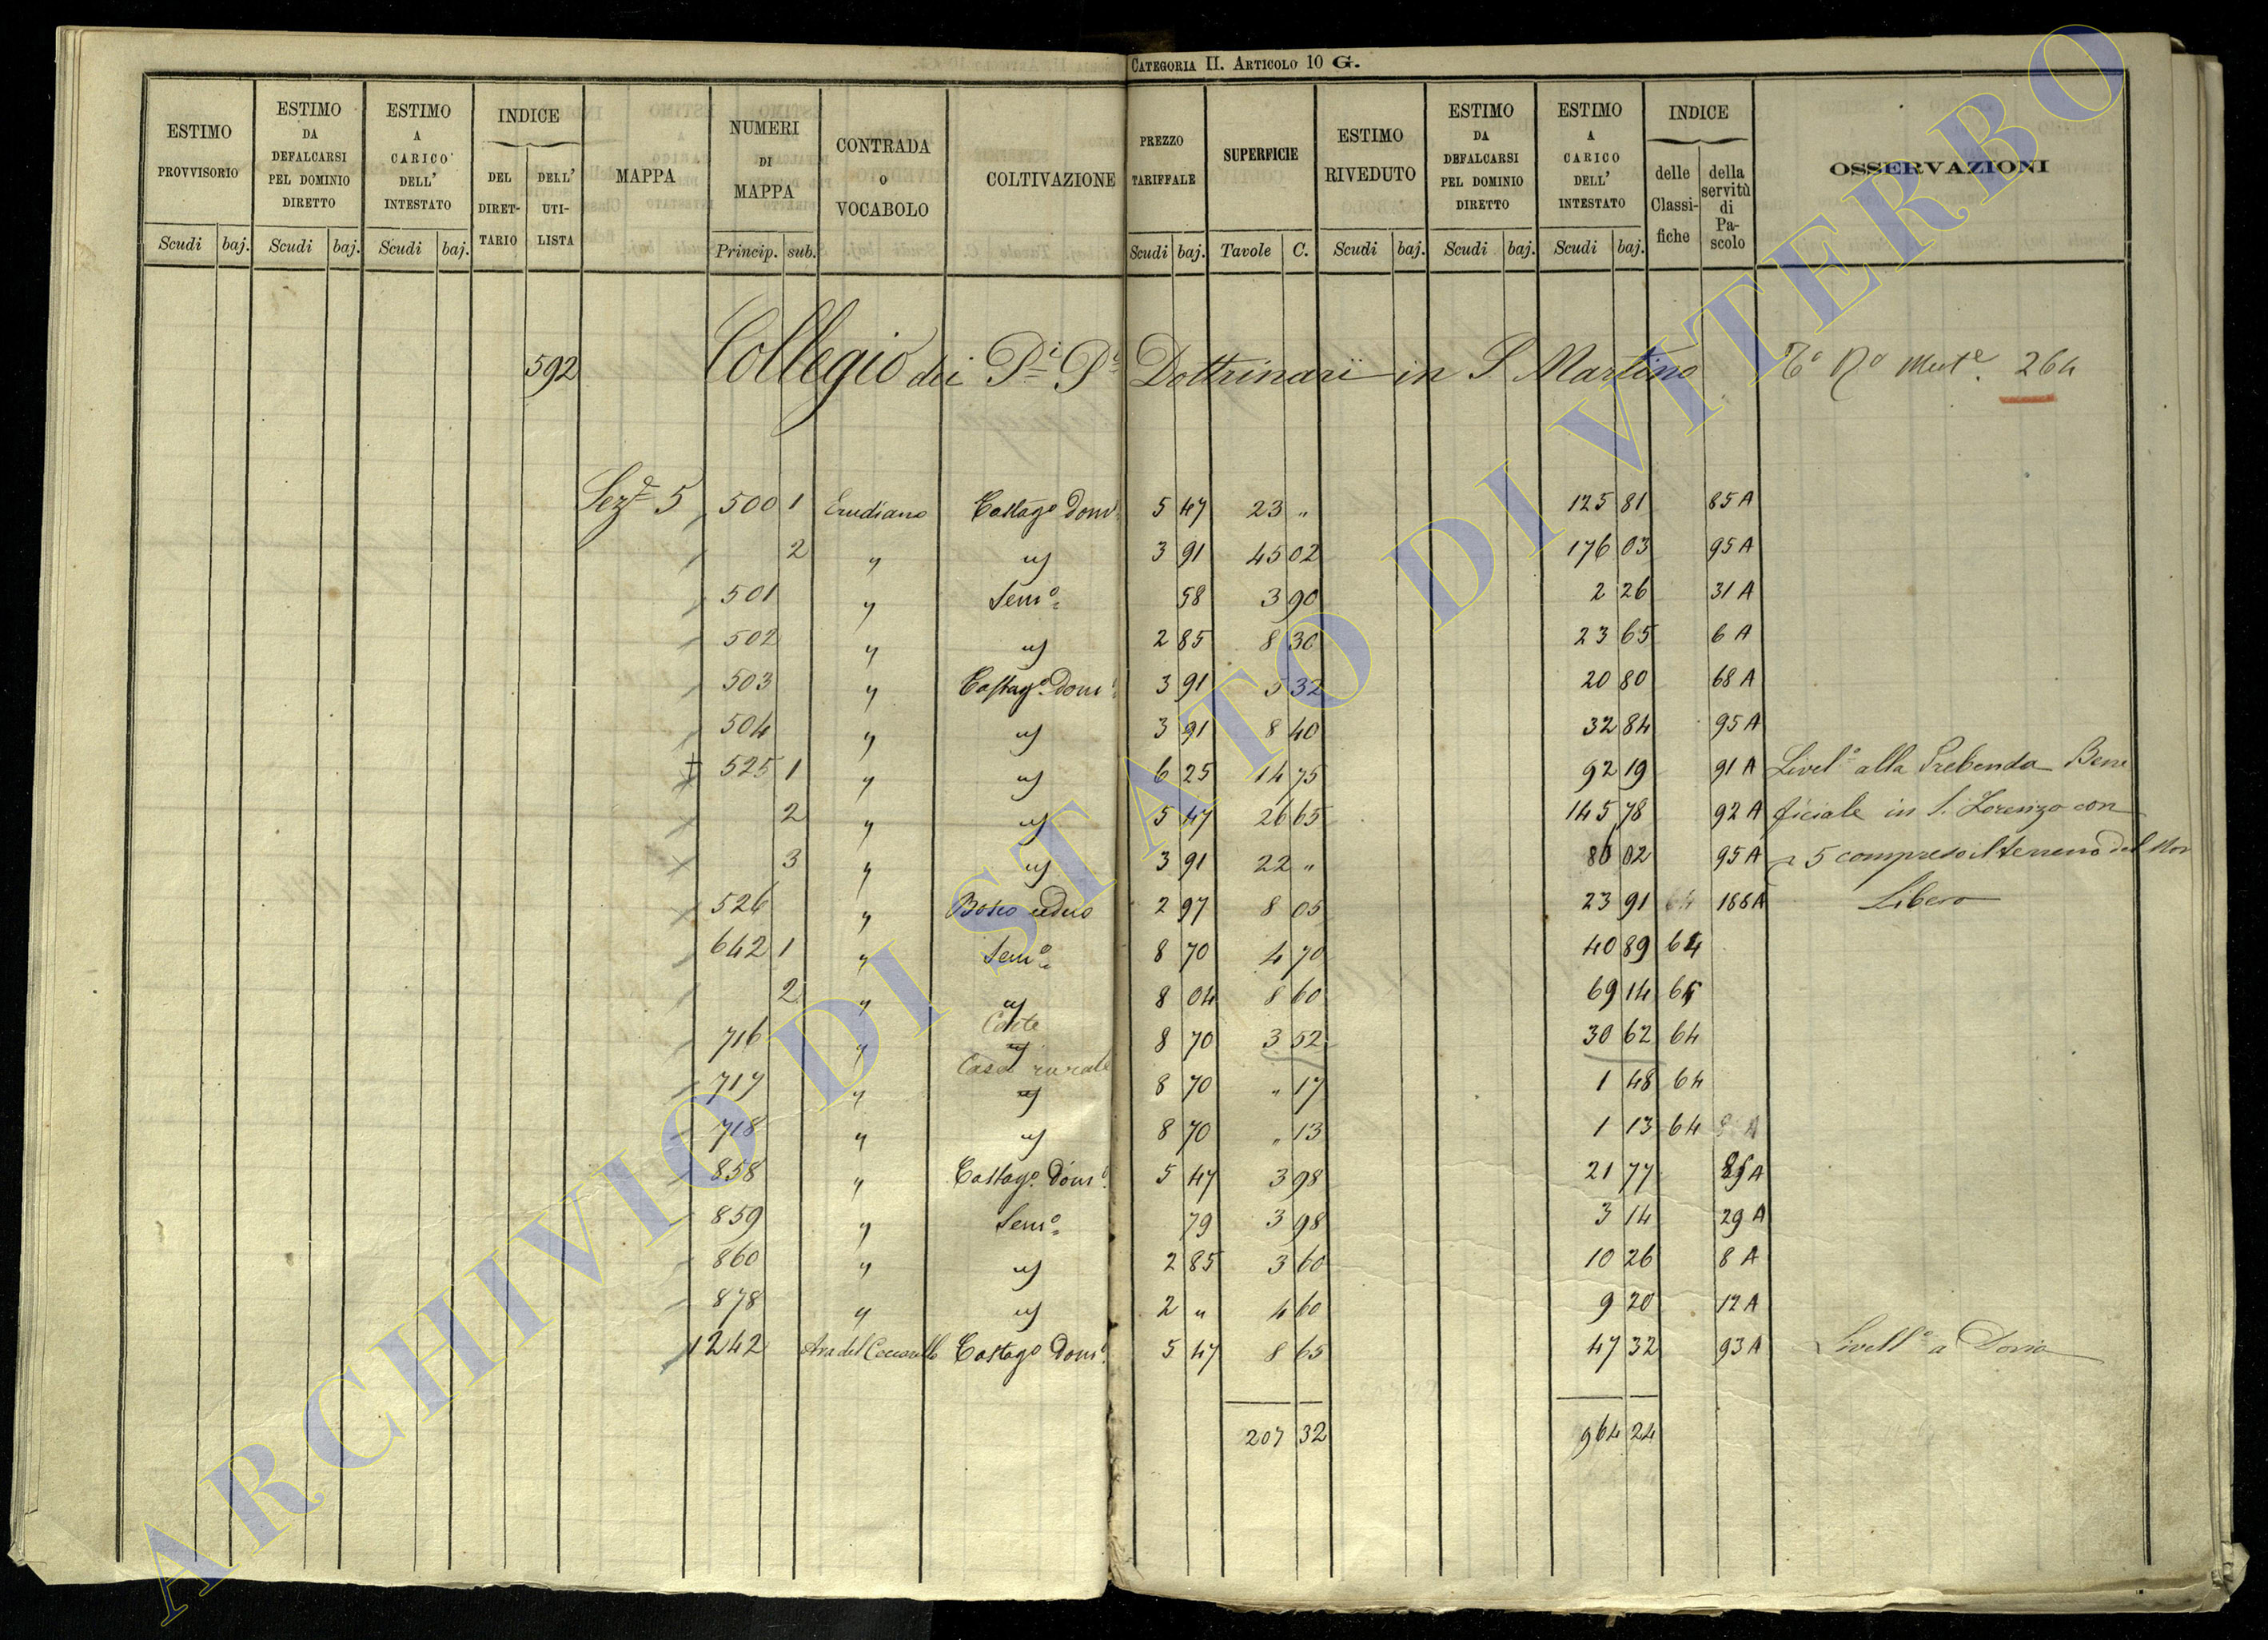 CATEGORIA II. ARTICOLO 10 G.
ESTIMO PROVVISORIO Scudi baj.
ESTIMO DA DEFALCARSI PEL DOMINIO DIRETTO Scudi baj.
ESTIMO A CARICO DELL' INTESTATO Scudi baj.
INDICE DEL DIRET-TARIO DELL' UTI-LISTA
MAPPA
NUMERI DI MAPPA Princip. sub.
CONTRADA O VOCABOLO
COLTIVAZIONE
PREZZO TARIFFALE Scudi baj.
SUPERFICIE Tavole C.
ESTIMO RIVEDUTO Scudi baj.
ESTIMO DA DEFALCARSI PEL DOMINIO DIRETTO Scudi baj.
ESTIMO A CARICO DELL' INTESTATO Scudi baj.
INDICE delle Classi-fiche della servitù di Pa-scolo
OSSERVAZIONI
592 Collegio dei Pi Pi Dottrinari in S Martino 264
Sez.e 5 500 1 Castag.o Dom.o 5 47 23 " 125 81 85 A
2 " " 3 91 45 02 176 03 95 A
501 " Sem.o 58 3 90 2 26 31 A
502 " " 2 85 8 30 23 65 6 A
503 " Castag.o Dom.o 3 91 5 32 20 80 68 A
504 " " 3 91 8 40 32 84 95 A
525 1 " " 6 25 14 75 92 19 91 A Livel.o alla Prebenda Bene
2 " " 5 47 26 65 145 78 92 A ficiale in S. Lorenzo con
3 " " 3 91 22 " 86 02 95 A 5 compreso il terreno del
526 " Bosco ceduo 2 97 8 05 23 91 64 Libero
642 1 " Sem.o 8 70 4 70 40 89 64
2 " " 8 04 8 60 69 14 65
716 " Corte 8 70 3 52 30 62 64
717 " Casa rurale 8 70 " 17 1 48 64
718 " " 8 70 " 13 1 13 64
858 " Castag.o Dom.o 5 47 3 98 21 77 85 A
859 " Sem.o 79 3 98 3 14 29 A
860 " " 2 85 3 60 10 26 8 A
878 " " 2 " 4 60 9 20 12 A
1242 Ara del Castag.o Dom.o 5 47 8 65 47 32 93 A Livell.o a Doria
207 32 964 24
ARCHIVIO DI STATO DI VITERBO